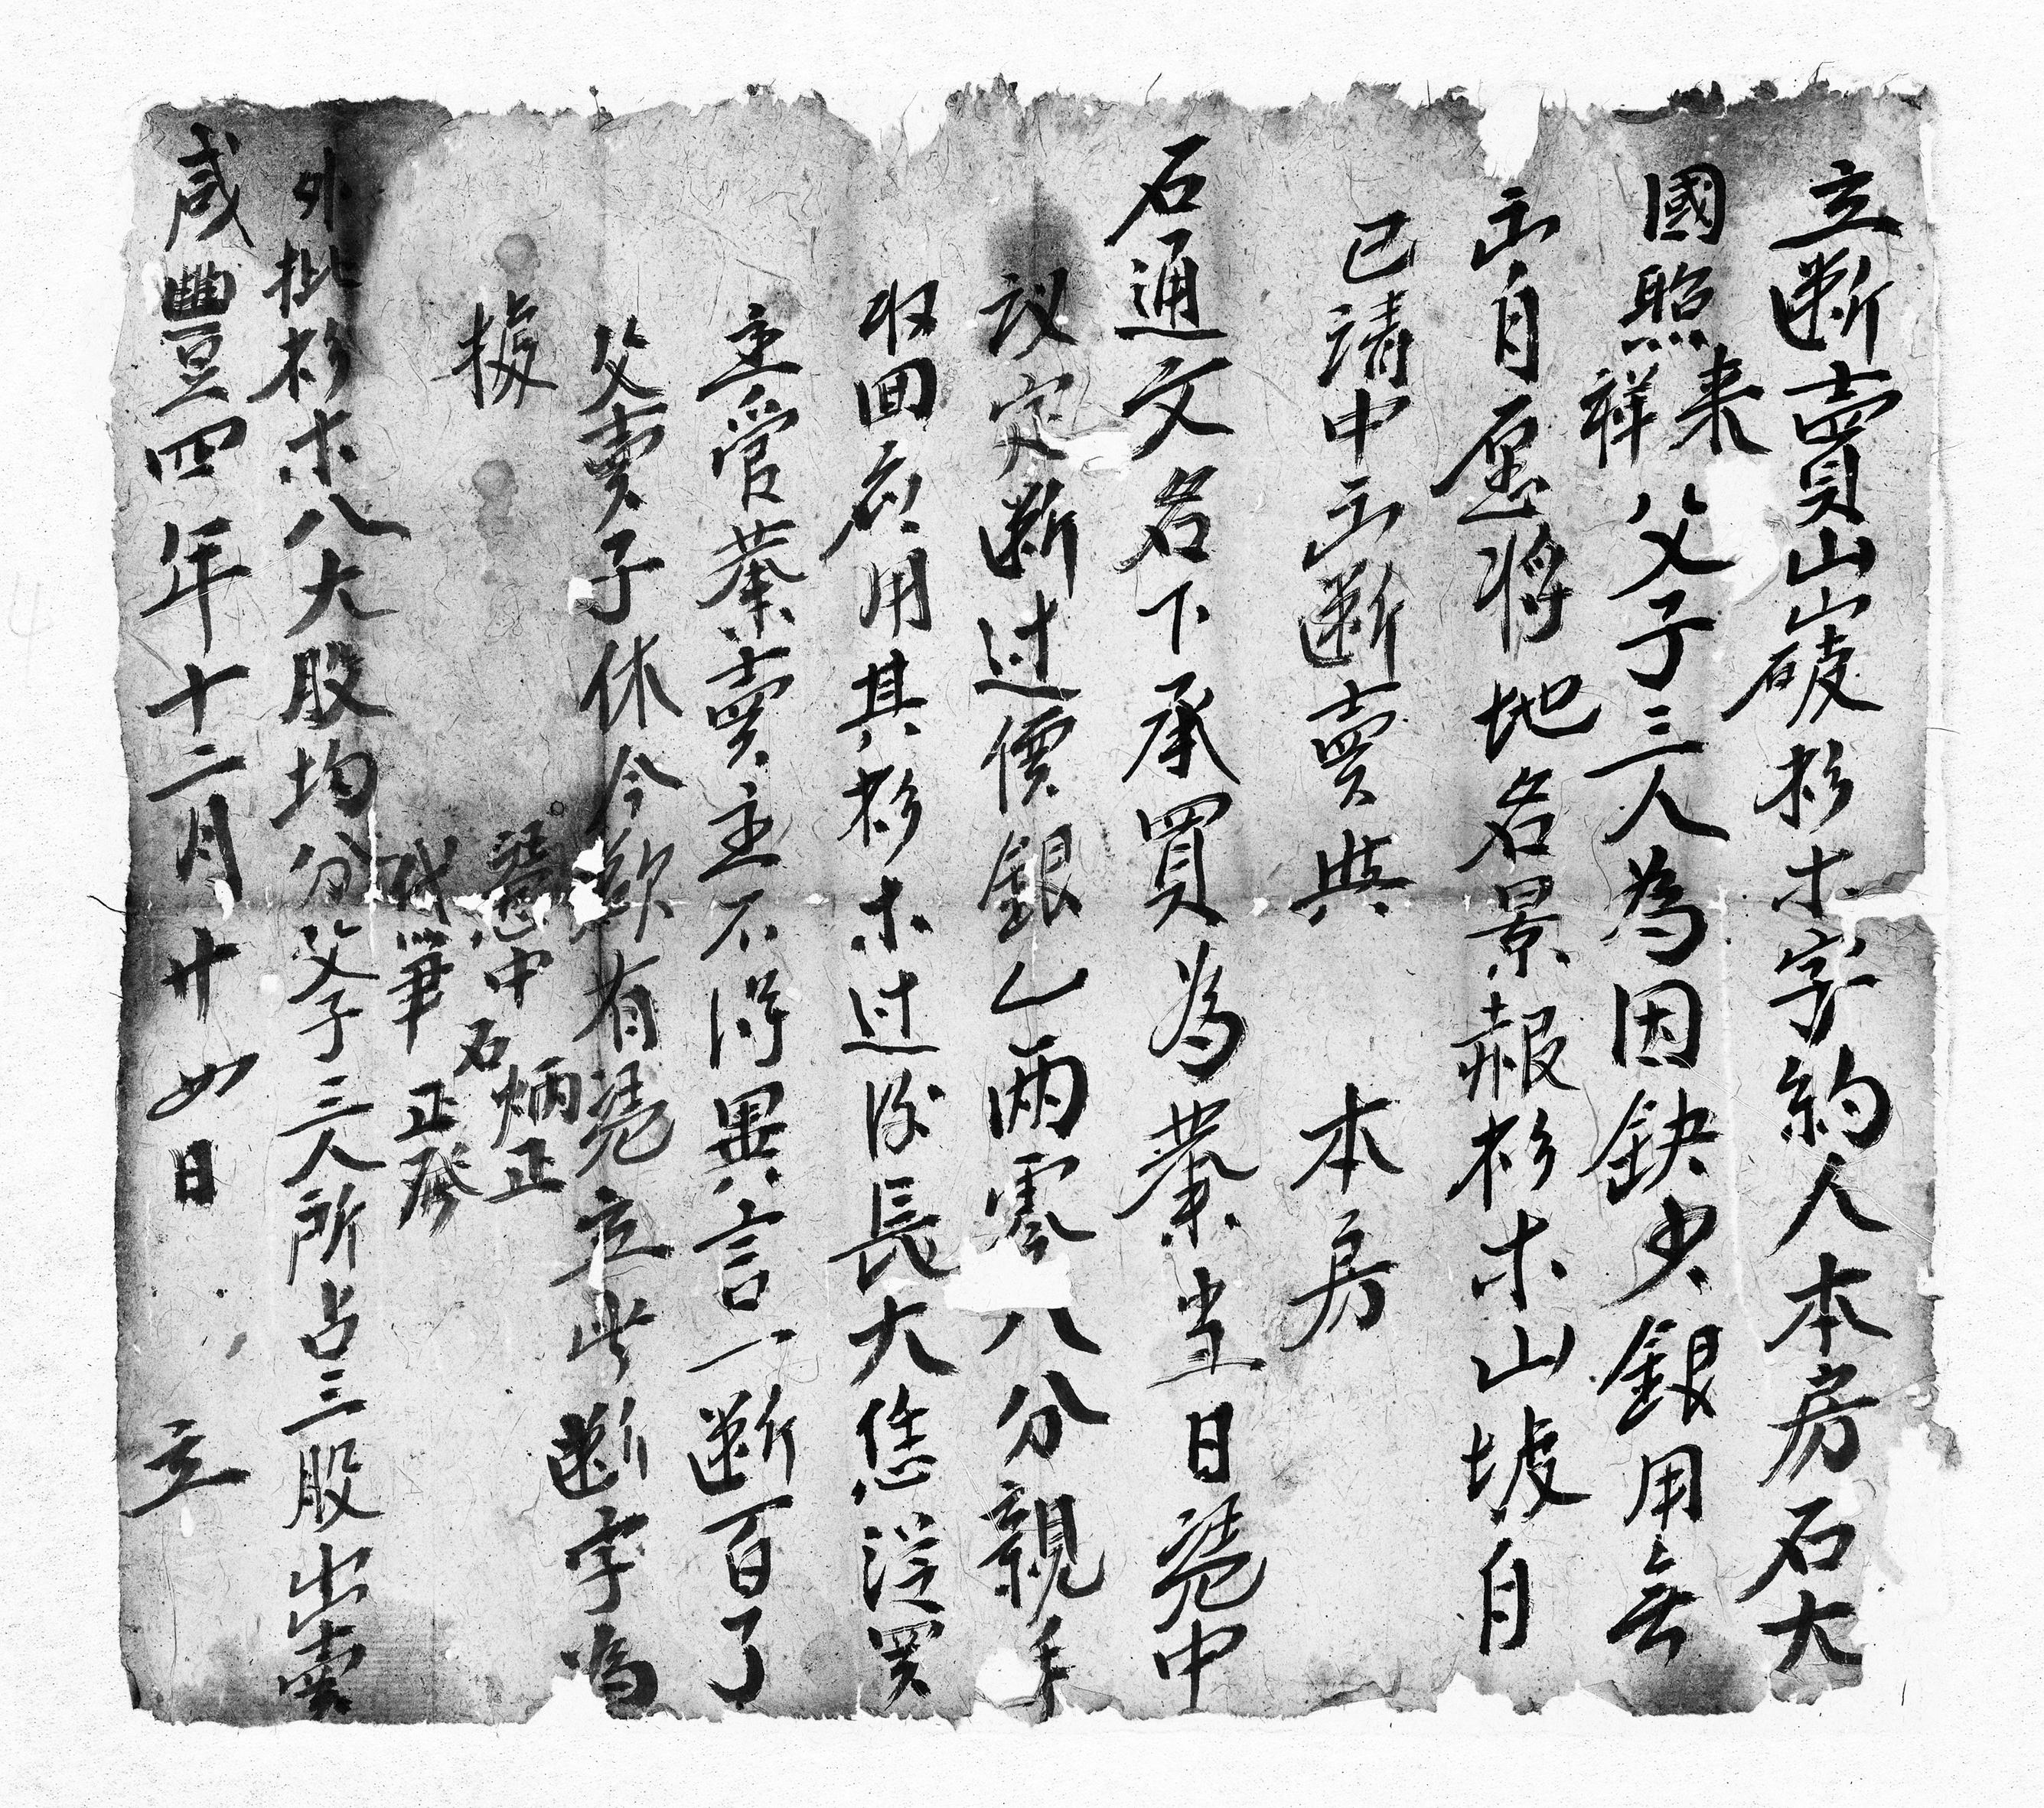 立断賣山嵗杉木字約人本房石大
國照来祥父子三人為因缺少銀用無
出自愿将地名景赧杉木山坡自
己請中出断賣與 本房
石通文名下承買為業当日凴中
议定断过價銀乙两零八分親手
收回應用其杉木过後長大恁從買
主管業賣主不得異言一断百了
父賣子休今欲有凴立此断字為
據
憑中 石炳正
代筆 正發
外批杉木八大股均分父子三人所占三股出賣
咸豐四年十二月廿四日 立